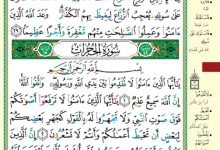 عَلَىٰ سُوقِهِۦ يُعْجِبُ ٱلزُّرَّاعَ لِيَغِيظَ بِهِمُ ٱلْكُفَّارَ ۗ وَعَدَ ٱللَّهُ ٱلَّذِينَ
ءَامَنُوا۟ وَعَمِلُوا۟ ٱلصَّٰلِحَٰتِ مِنْهُم مَّغْفِرَةً وَأَجْرًا عَظِيمًۢا ٢٩
سُورَةُ الْحُجُرَاتِ
بِسْمِ ٱللَّهِ ٱلرَّحْمَٰنِ ٱلرَّحِيمِ
يَٰٓأَيُّهَا ٱلَّذِينَ ءَامَنُوا۟ لَا تُقَدِّمُوا۟ بَيْنَ يَدَىِ ٱللَّهِ وَرَسُولِهِۦ ۖ وَٱتَّقُوا۟
ٱللَّهَ ۚ إِنَّ ٱللَّهَ سَمِيعٌ عَلِيمٌ ١ يَٰٓأَيُّهَا ٱلَّذِينَ ءَامَنُوا۟ لَا تَرْفَعُوٓا۟ أَصْوَٰتَكُمْ
فَوْقَ صَوْتِ ٱلنَّبِىِّ وَلَا تَجْهَرُوا۟ لَهُۥ بِٱلْقَوْلِ كَجَهْرِ بَعْضِكُمْ
لِبَعْضٍ أَن تَحْبَطَ أَعْمَٰلُكُمْ وَأَنتُمْ لَا تَشْعُرُونَ ٢ إِنَّ ٱلَّذِينَ